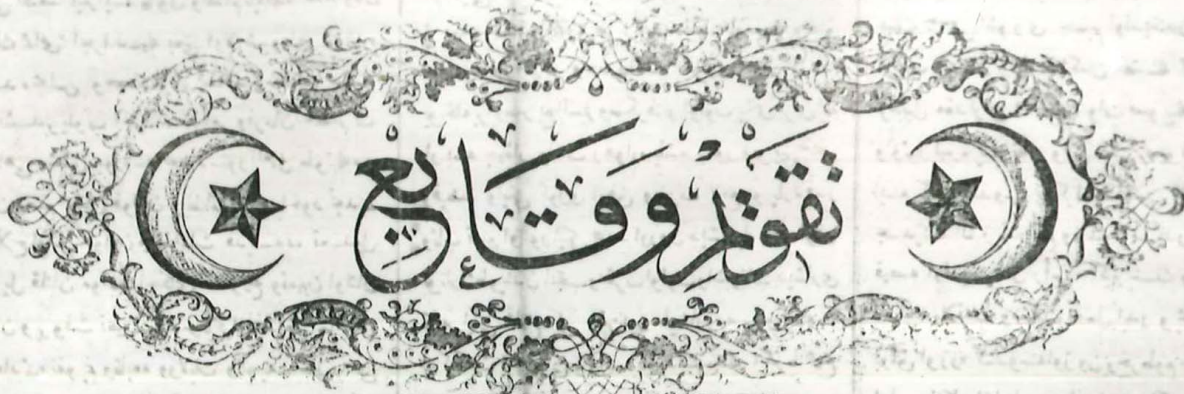 تقويم وقايع